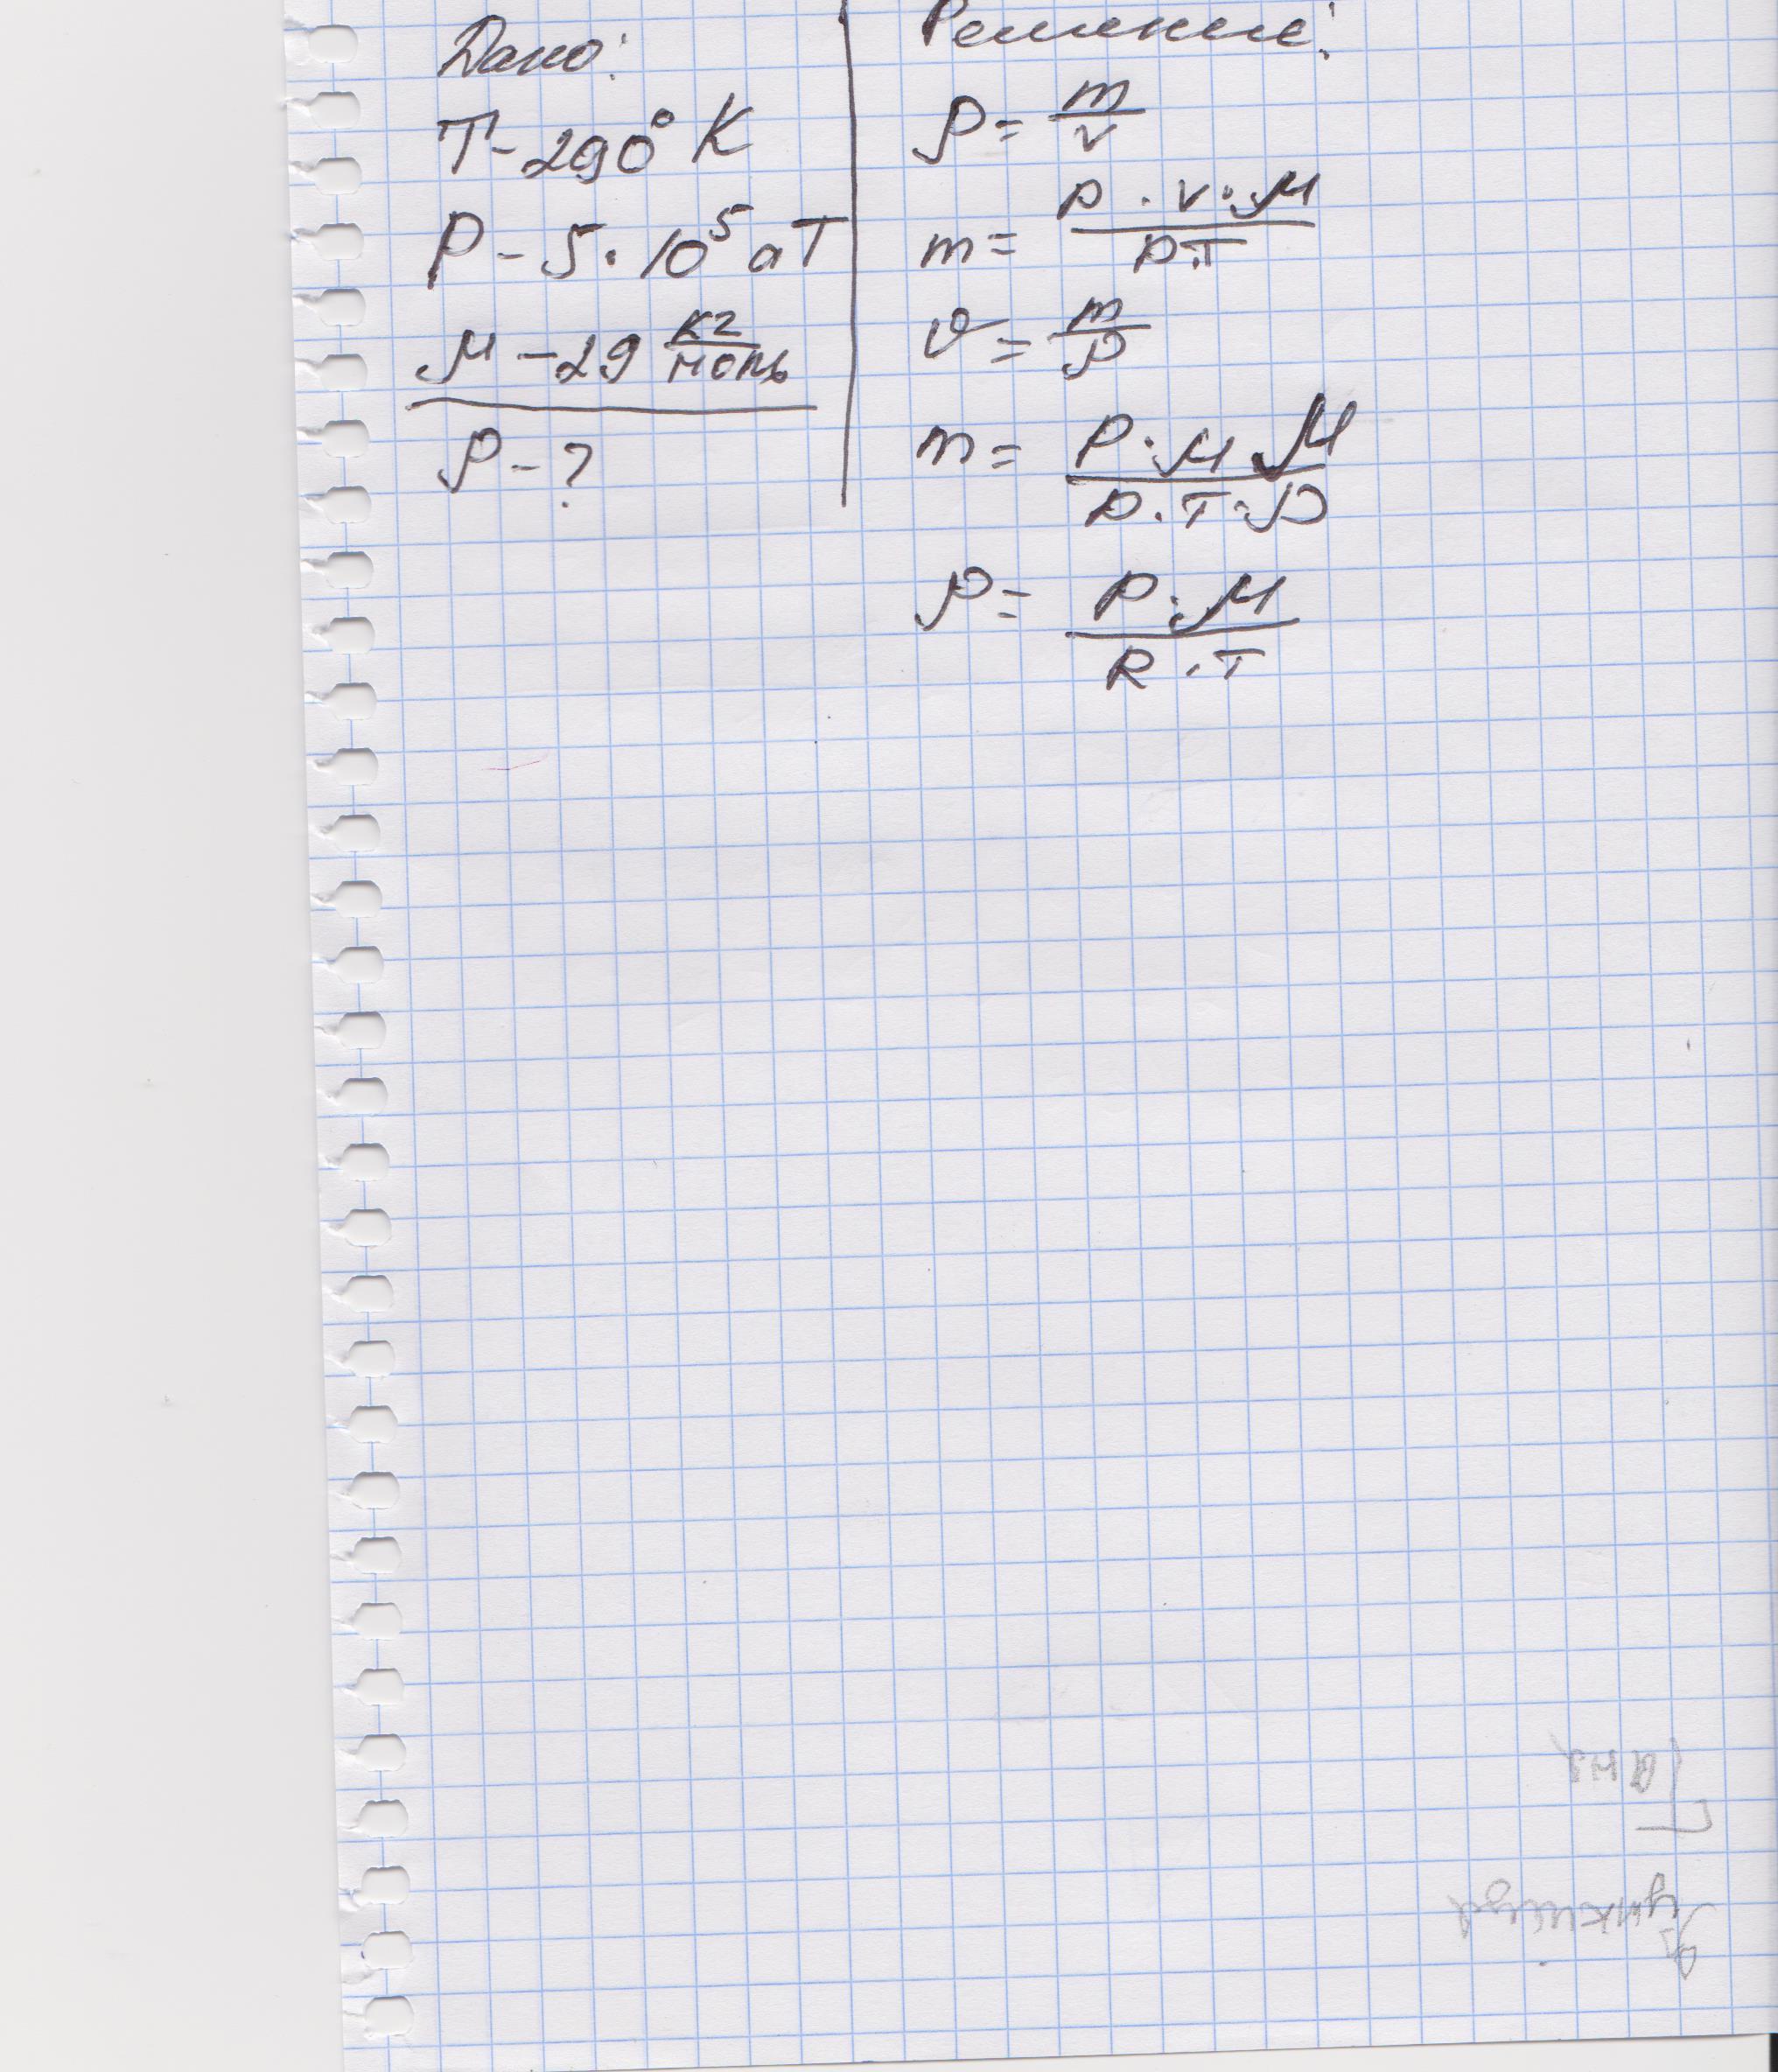 Дано:
T - 290° K
P - 5 · 10⁵ ат
μ - 29 кг/моль
ρ - ?
Решение:
ρ = m/v
m = p · v · μ / p · T
v = m/ρ
m = P · μ · μ / p · T · ρ
ρ = P · μ / R · T